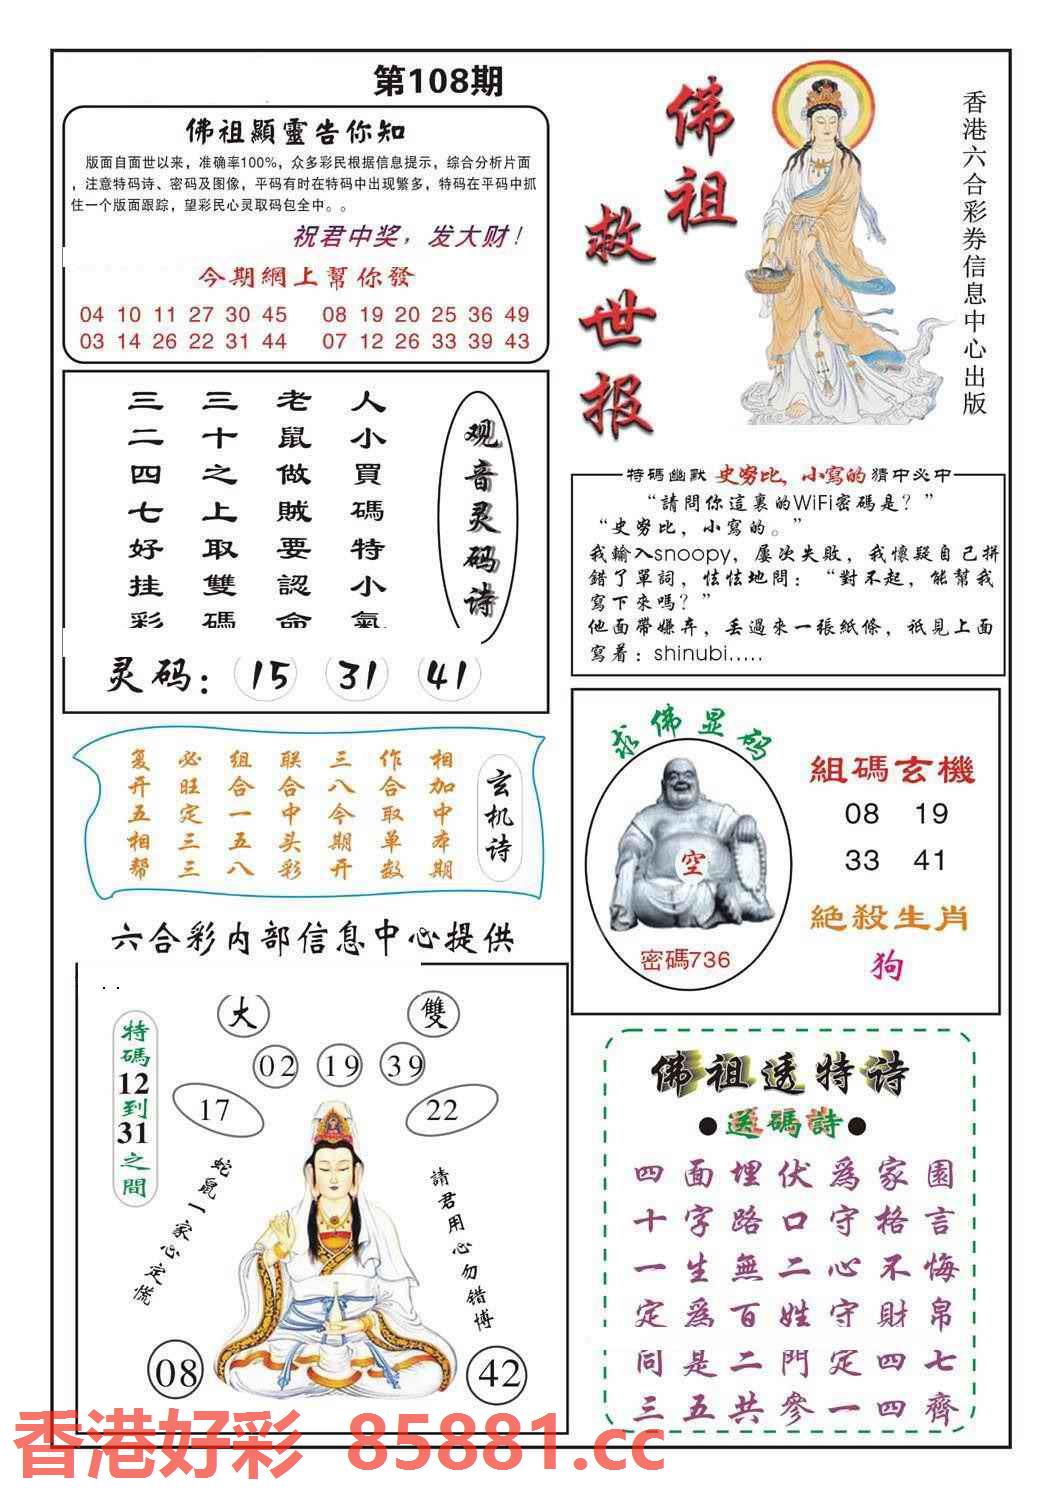 第108期
佛祖顯靈告你知
版面自面世以来，准确率100%，众多彩民根据信息提示，综合分析片面
，注意特码诗、密码及图像，平码有时在特码中出现繁多，特码在平码中抓
住一个版面跟踪，望彩民心灵取码包全中。。
祝君中奖，发大财！
今期網上幫你發
04 10 11 27 30 45 08 19 20 25 36 49
03 14 26 22 31 44 07 12 26 33 39 43
佛祖
救世报
香港六合彩券信息中心出版
观音灵码诗
人小買碼特小氣
老鼠做賊要認命
三十之上取雙碼
三二四七好挂彩
灵码： 15 31 41
特碼幽默 史努比，小寫的 猜中必中
“請問你這裏的WiFi密碼是？”
“史努比，小寫的。”
我輸入snoopy，屢次失敗，我懷疑自己拼
錯了單詞，怯怯地問：“對不起，能幫我
寫下來嗎？”
他面帶嫌弃，丢過來一張紙條，祇見上面
寫着：shinubi.....
玄机诗
相加中本期
作合取单数
三八今期开
联合中头彩
组合一五八
必旺定三三
复开五相帮
求佛显码
空
密碼736
組碼玄機
08 19
33 41
絕殺生肖
狗
六合彩内部信息中心提供
大 雙
02 19 39
17 22
特碼12到31之間
蛇鼠一家心定慌
請君用心勿错博
08 42
佛祖透特诗
●送碼詩●
四面埋伏爲家園
十字路口守格言
一生無二心不悔
定爲百姓守財帛
同是二門定四七
三五共參一四齊
香港好彩 85881.cc